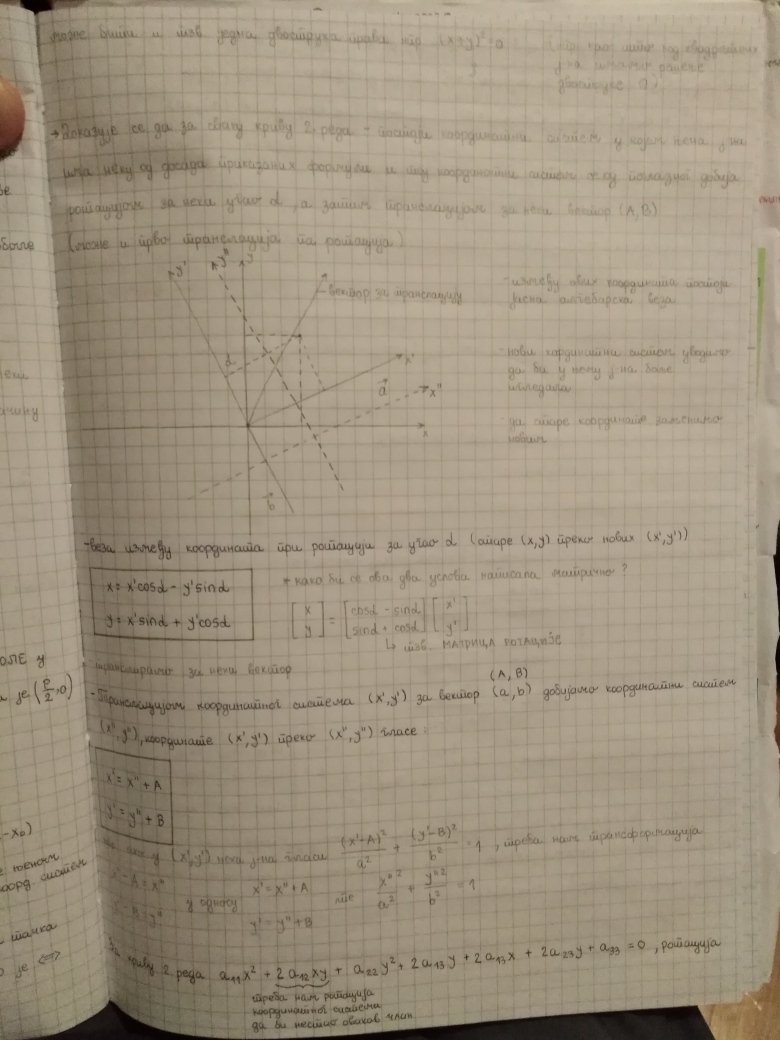 може бити и тзв једна двострука права нпр (x+y)²=0
двоструке
→ Доказује се да за сваку криву 2. реда - постоји координатни систем у којем њена ј-на
има неку од досада приказаних формули и тај координатни систем се од полазног добија
ротацијом за неки угао α, а затим транслацијом за неки вектор (A,B)
(може и прво транслација па ротација)
y' y'' y
вектор за транслацију
- између ових координата постоји
јасна алгебарска веза
α
x'
- нови кординатни систем уводимо
да би у њему ј-на боље
изгледала
a⃗
x''
x
- да старе координате заменимо
новим
b⃗
- веза између координата при ротацији за угао α (старе (x,y) преко нових (x',y'))
x = x'cosα - y'sinα
y = x'sinα + y'cosα
* како би се ова два услова написала матрично?
[x y] = [cosα - sinα sinα + cosα] [x' y']
↳ тзв. МАТРИЦА РОТАЦИЈЕ
транслирамо за неки вектор
(A, B)
- Транслацијом координатног система (x',y') за вектор (a,b) добијамо координатни систем
(x'',y''), координате (x',y') преко (x'',y'') гласе:
x' = x'' + A
y' = y'' + B
у (x',y') нека ј-на гласи (x'-A)²/a² + (y'-B)²/b² = 1, треба нам трансформација
x' - A = x''
y' - B = y''
у односу
x' = x'' + A
y' = y'' + B
x''²/a² + y''²/b² = 1
За криву 2 реда a₁₁x² + 2a₁₂xy + a₂₂y² + 2a₁₃y + 2a₁₃x + 2a₂₃y + a₃₃ = 0, ротација
треба нам ротација
координатног система
да би нестао овакав члан
боље
ОЛЕ У
је (p/2, 0)
- x₀)
коорд систем
тачка
је ⇔